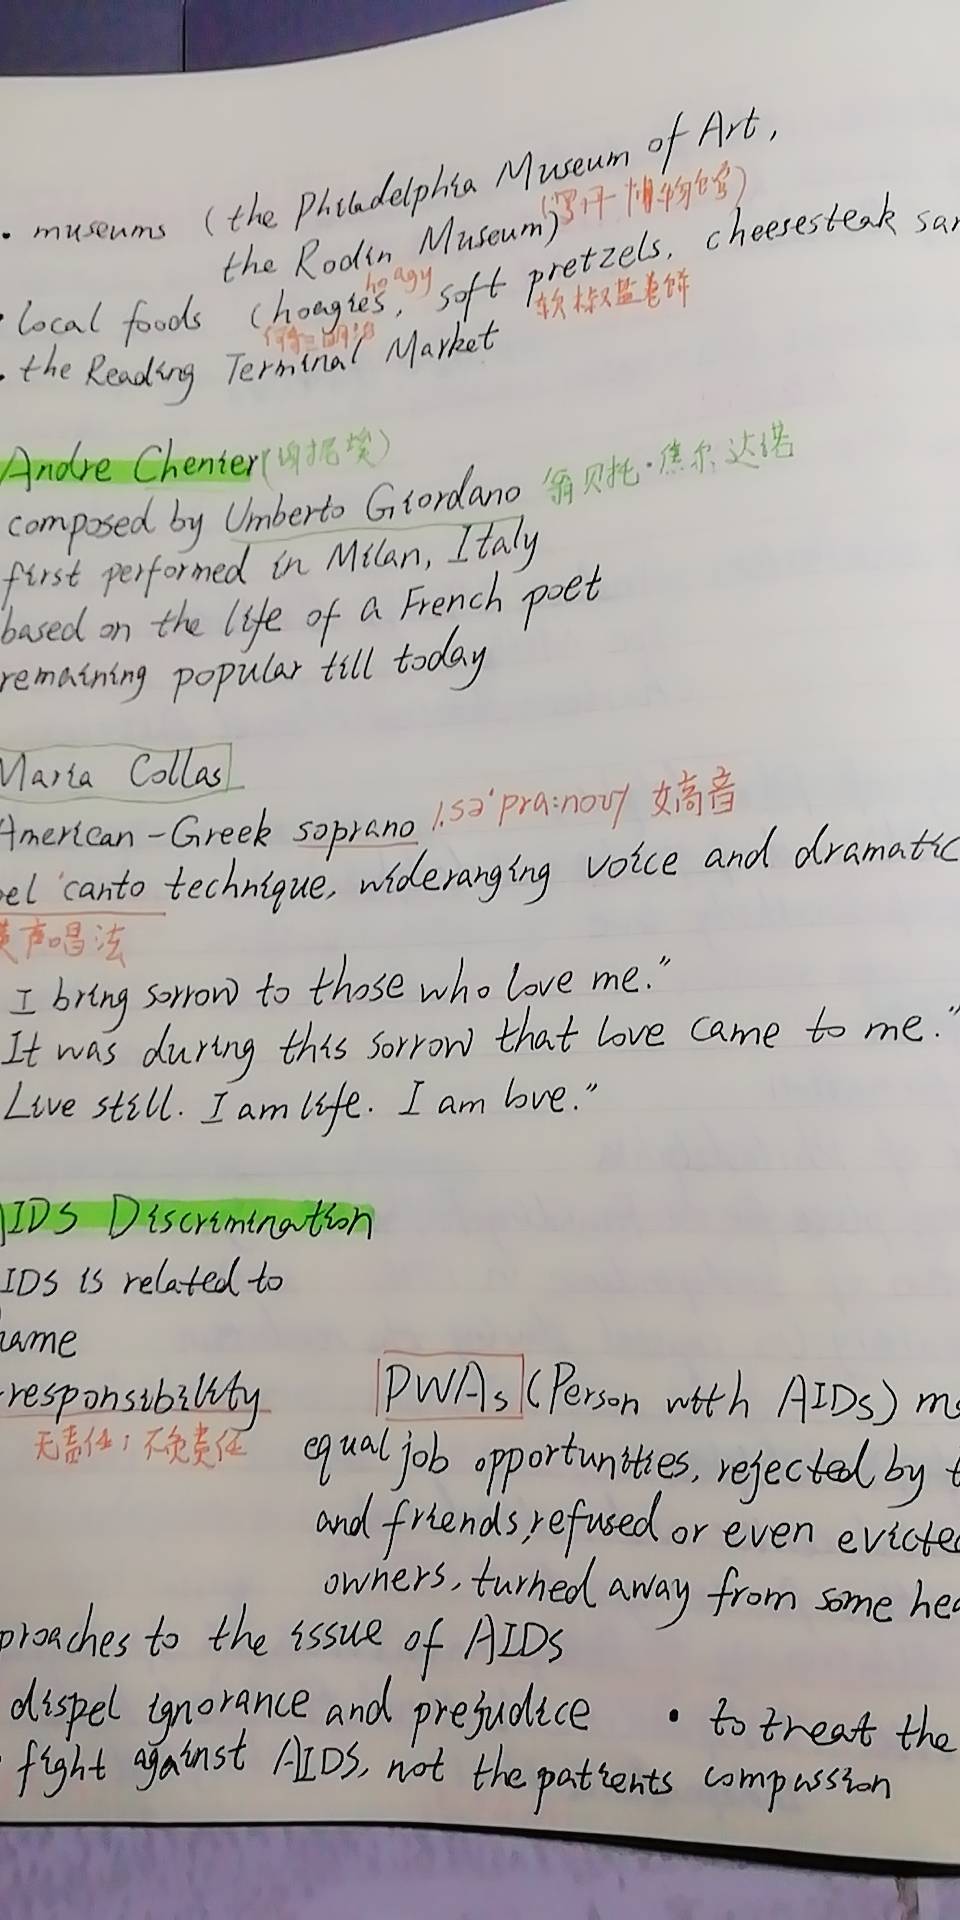 • museums (the Philadelphia Museum of Art,
the Rodin Museum) (罗丹博物馆)
hoagy
• local foods (hoagies, soft pretzels, cheesesteak
软椒盐卷饼
• the Reading Terminal Market
Andre Chenier (谢尼埃)
composed by Umberto Giordano 翁贝托·焦尔达诺
first performed in Milan, Italy
based on the life of a French poet
remaining popular till today
Maria Collas
American-Greek soprano /.sə'pra:noʊ/ 女高音
bel canto technique, wideranging voice and dramatic
美声唱法
I bring sorrow to those who love me."
It was during this sorrow that love came to me."
Live still. I am life. I am love."
AIDS Discrimination
AIDS is related to
responsibility
无责任; 不负责任
PWAs (Person with AIDs)
equal job opportunities, rejected by
and friends, refused or even evicted
owners, turned away from some
proaches to the issue of AIDS
dispel ignorance and prejudice • to treat the
• fight against AIDS, not the patients compassion